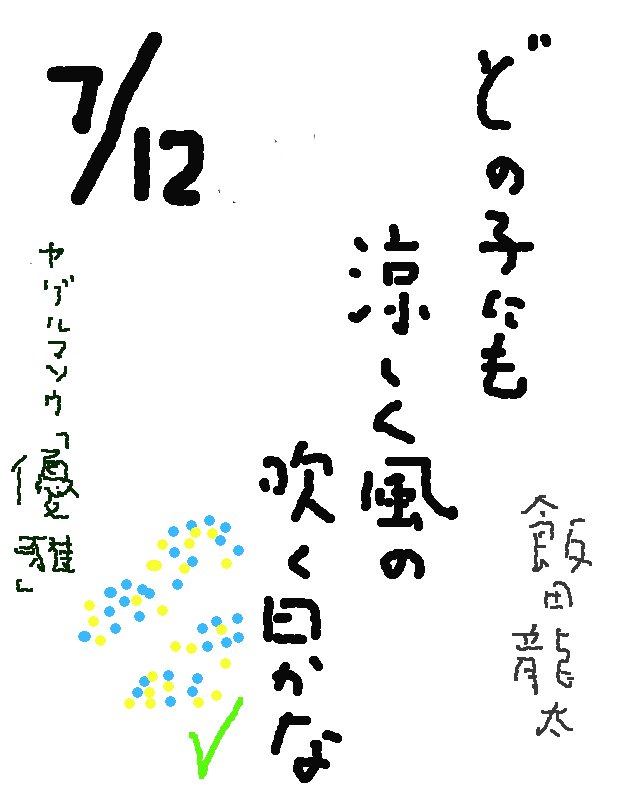 7/12
どの子にも
涼しく風の
吹く日かな
飯田龍太
ヤグルマソウ「優雅」